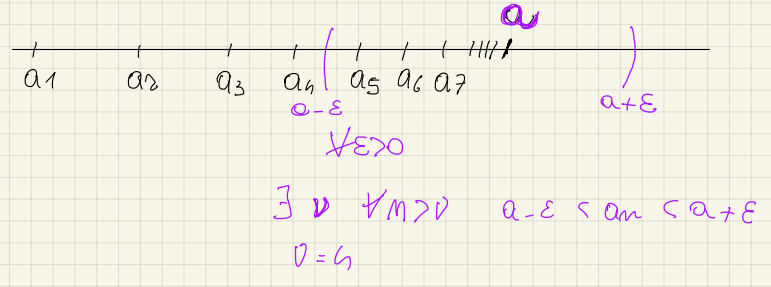 a
a1 a2 a3 a4 a5 a6 a7
a-ε a+ε
∀ε>0
∃ ν ∀n>ν a-ε < an < a+ε
ν=4